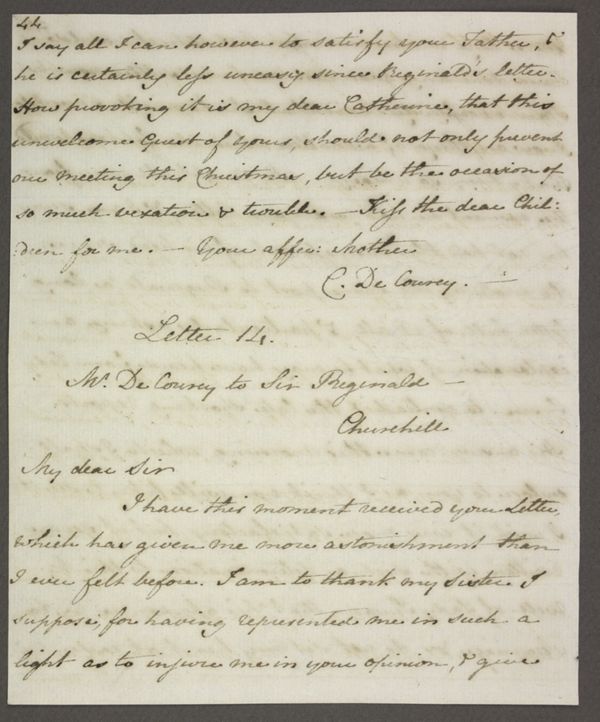 44
I say all I can however to satisfy your Father, &
he is certainly less uneasy since Reginald's letter.
How provoking it is my dear Catherine, that this
unwelcome Guest of yours, should not only prevent
our meeting this Christmas, but be the occasion of
so much vexation & trouble. — Kiss the dear Chil:
:dren for me. — Your affec: Mother
C. De Courcy. —
Letter 14.
Mr. De Courcy to Sir Reginald —
Churchill
My dear Sir
I have this moment received your Letter,
which has given me more astonishment than
I ever felt before. I am to thank my Sister I
suppose, for having represented me in such a
light as to injure me in your opinion, & give